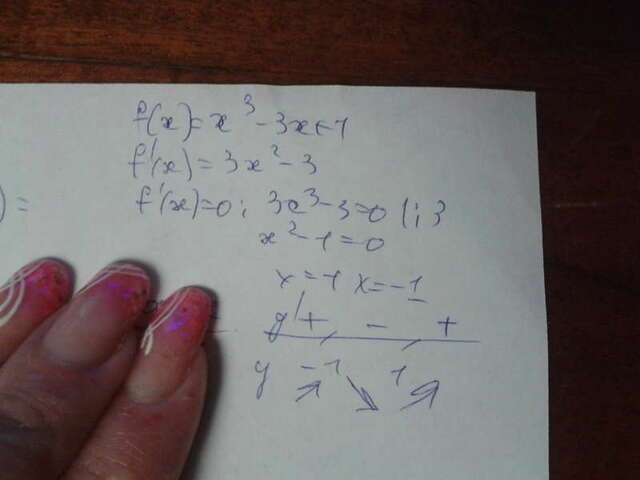 f(x)=x³-3x+1
f'(x)=3x²-3
) =
f'(x)=0; 3x³-3=0 |:3
x²-1=0
x=1 x=-1
y' + - +
y -1 ↗ ↘ 1 ↗